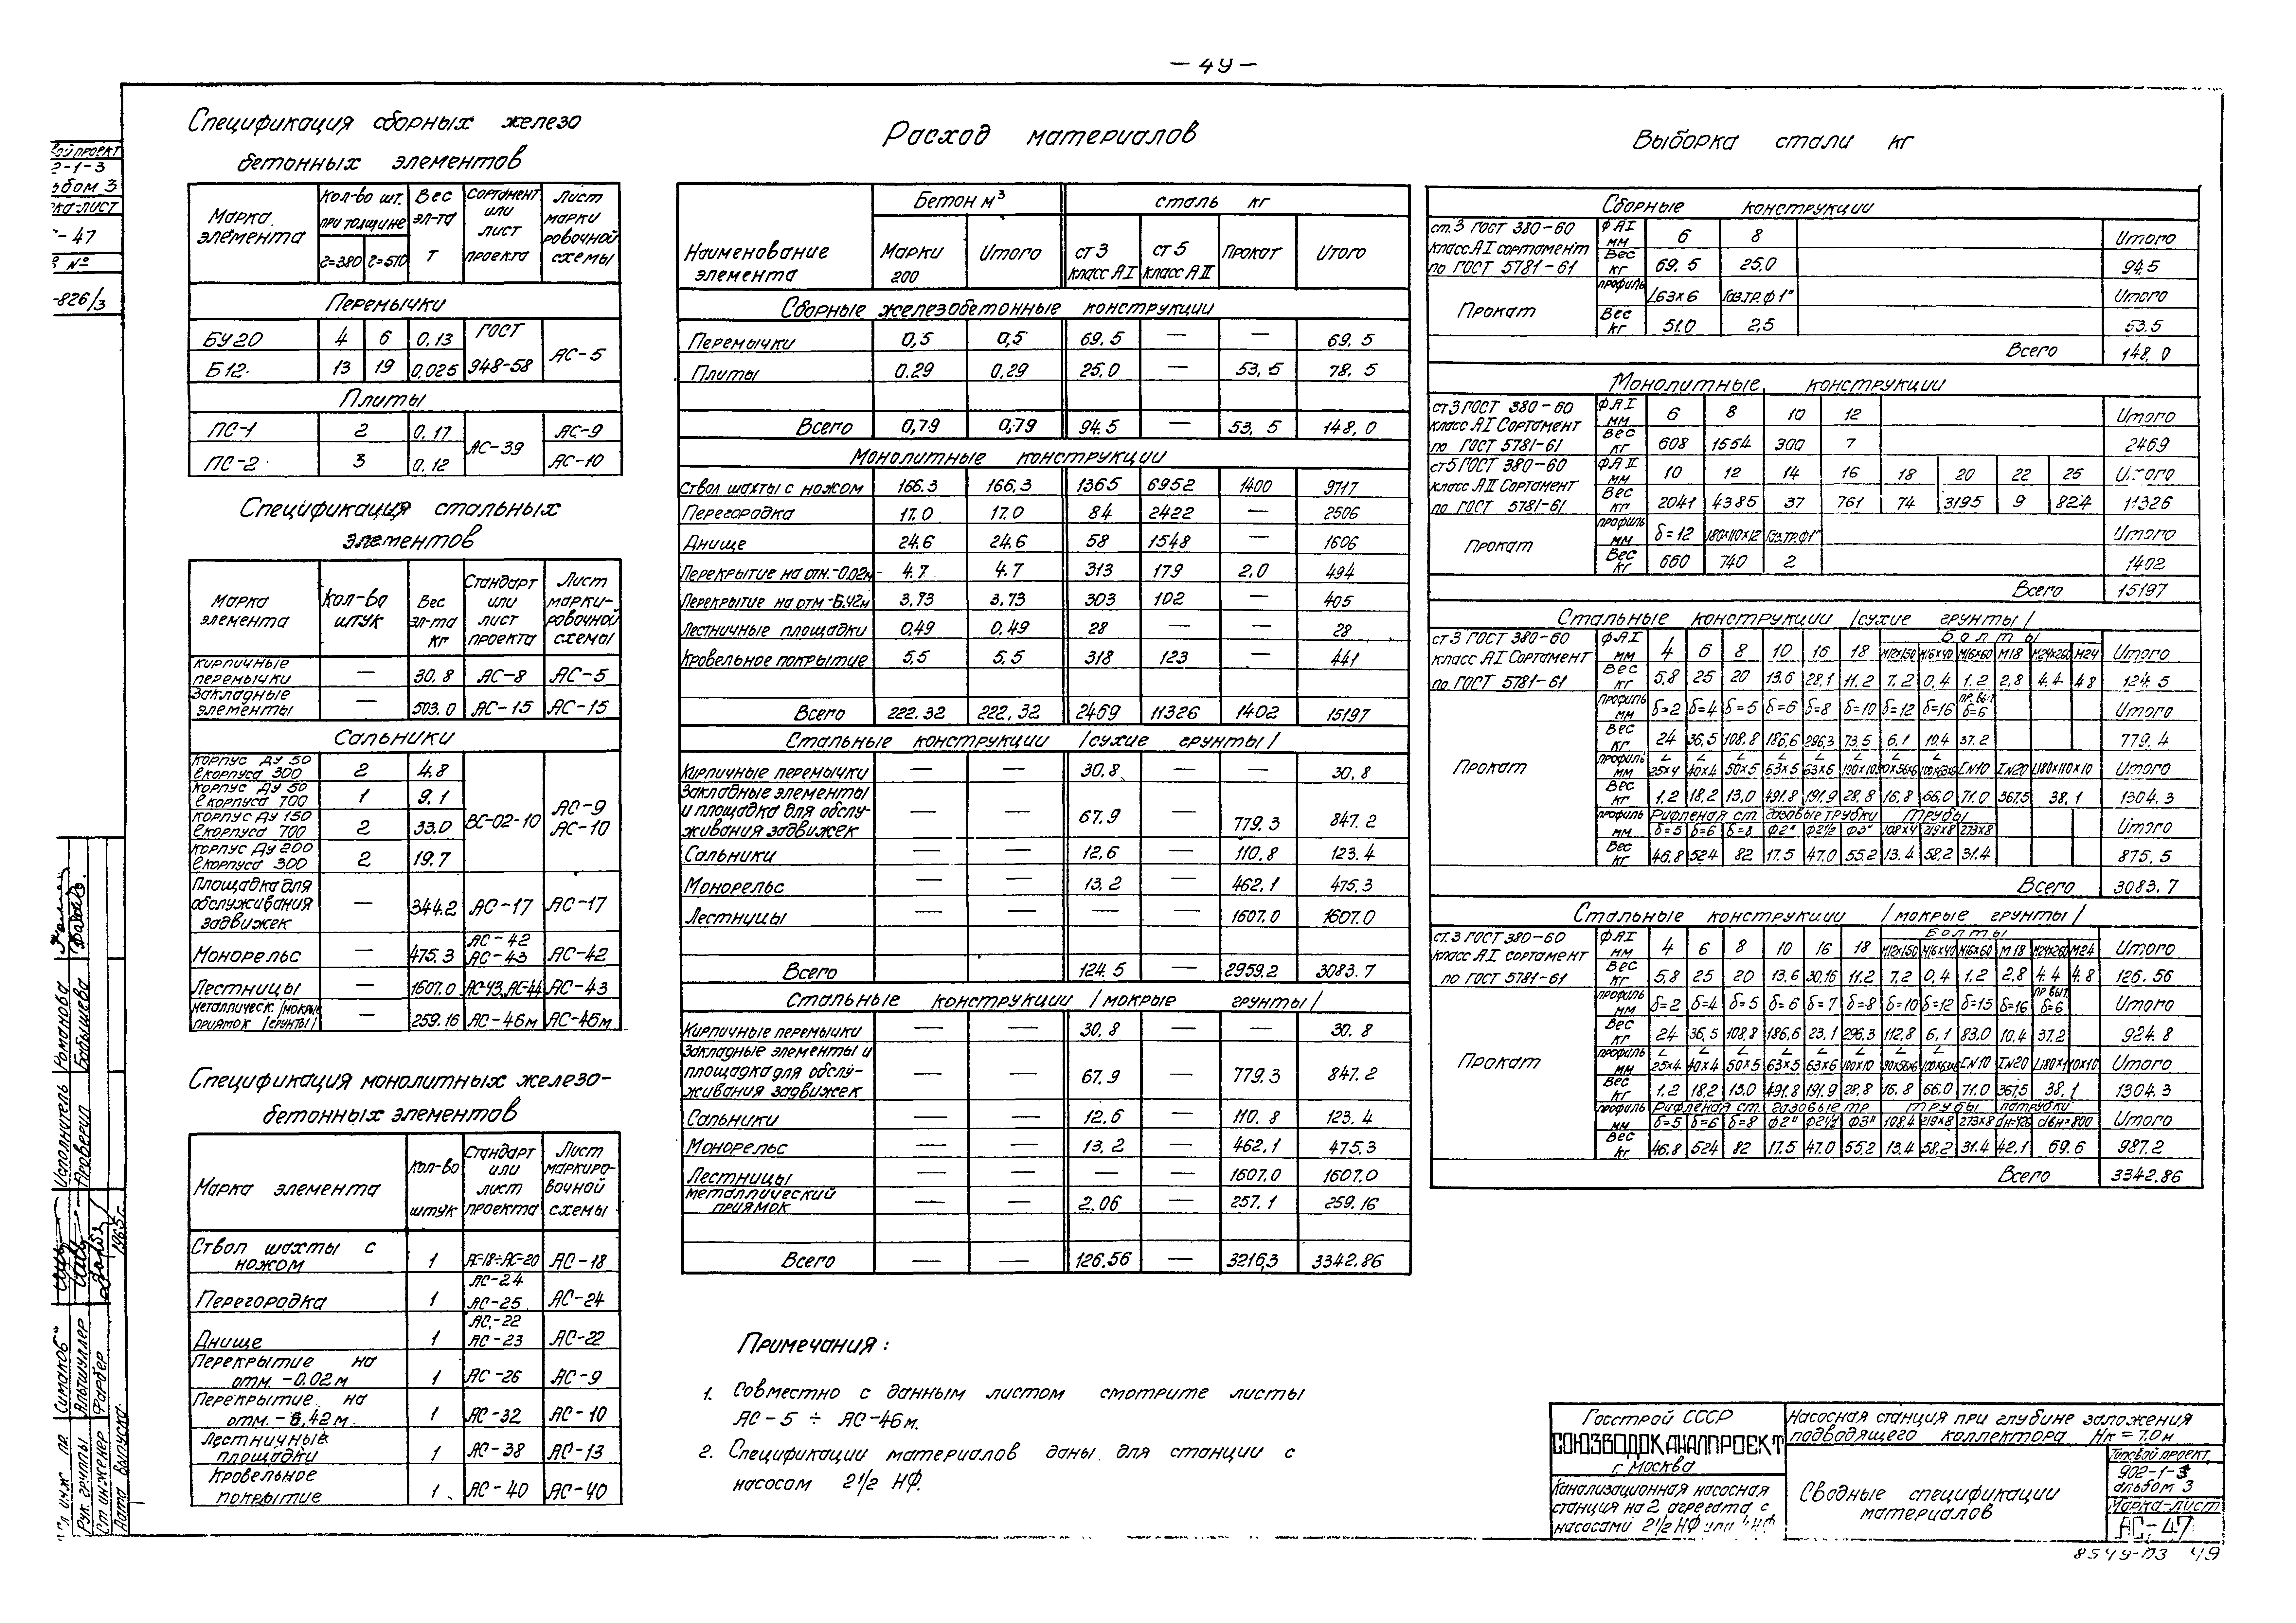 — 49 —
Спецификация сборных железо
бетонных элементов
Марка элемента | Кол-во шт. при толщине | Вес эл-та т | Сортамент или лист проекта | Лист маркировочной схемы
г=380 г=510
Перемычки
БУ20 4 6 0,13 ГОСТ 948-58 АС-5
Б12 13 19 0,025
Плиты
ПС-1 2 0.17 АС-39 АС-9
ПС-2 3 0.12 АС-10
Спецификация стальных
элементов
Марка элемента | Кол-во штук | Вес эл-та кг | Стандарт или лист проекта | Лист маркировочной схемы
Кирпичные перемычки — 30.8 АС-8 АС-5
Закладные элементы — 503.0 АС-15 АС-15
Сальники
Корпус Ду 50 ℓ корпуса 300 2 4.8 ВС-02-10 АС-9 АС-10
Корпус Ду 50 ℓ корпуса 700 1 9.1
Корпус Ду 150 ℓ корпуса 700 2 33.0
Корпус Ду 200 ℓ корпуса 300 2 19.7
Площадка для обслуживания задвижек — 344.2 АС-17 АС-17
Монорельс — 475.3 АС-42 АС-43 АС-42
Лестницы — 1607.0 АС-43, АС-44 АС-43
Металлическ. приямок /мокрые грунты/ — 259.16 АС-46м АС-46м
Спецификация монолитных железо-
бетонных элементов
Марка элемента | Кол-во штук | Стандарт или лист проекта | Лист маркировочной схемы
Ствол шахты с ножом 1 АС-18÷АС-20 АС-18
Перегородка 1 АС-24 АС-25 АС-24
Днище 1 АС-22 АС-23 АС-22
Перекрытие на отм. -0.02м 1 АС-26 АС-9
Перекрытие на отм. -6,42м. 1 АС-32 АС-10
Лестничные площадки 1 АС-38 АС-13
Кровельное покрытие 1 АС-40 АС-40
Расход материалов
Наименование элемента | Бетон м³ | сталь кг
Марки 200 | Итого | ст 3 класс АI | ст 5 класс АII | Прокат | Итого
Сборные железобетонные конструкции
Перемычки 0,5 0,5 69.5 — — 69.5
Плиты 0.29 0.29 25,0 — 53,5 78.5
Всего 0,79 0,79 94.5 — 53.5 148,0
Монолитные конструкции
Ствол шахты с ножом 166.3 166,3 1365 6952 1400 9717
Перегородка 17.0 17.0 84 2422 — 2506
Днище 24.6 24.6 58 1548 — 1606
Перекрытие на отм.-0.02м 4.7 4.7 313 179 2.0 494
Перекрытие на отм -6.42м 3.73 3.73 303 102 — 405
Лестничные площадки 0,49 0,49 28 — — 28
Кровельное покрытие 5,5 5,5 318 123 — 441
Всего 222.32 222,32 2469 11326 1402 15197
Стальные конструкции /сухие грунты/
Кирпичные перемычки — — 30,8 — — 30,8
Закладные элементы и площадка для обслуживания задвижек — — 67.9 — 779.3 847.2
Сальники — — 12,6 — 110.8 123.4
Монорельс — — 13,2 — 462.1 475.3
Лестницы — — — — 1607.0 1607.0
Всего 124.5 — 2959.2 3083.7
Стальные конструкции /мокрые грунты/
Кирпичные перемычки — — 30.8 — — 30.8
Закладные элементы и площадка для обслуживания задвижек — — 67.9 — 779.3 847.2
Сальники — — 12.6 — 110.8 123.4
Монорельс — — 13.2 — 462.1 475.3
Лестницы — — — — 1607.0 1607.0
Металлический приямок — — 2.06 — 257.1 259.16
Всего — — 126.56 — 3216,3 3342.86
Примечания:
1. Совместно с данным листом смотрите листы
АС-5 ÷ АС-46м.
2. Спецификации материалов даны для станции с
насосом 2½ НФ.
Выборка стали кг
Сборные конструкции
ст.3 ГОСТ 380-60 класс АI сортамент по ГОСТ 5781-61
ФАI мм 6 8 Итого
Вес кг 69.5 25.0 94.5
Прокат
профиль L63х6 Газ.тр.ф1" Итого
Вес кг 51.0 2,5 53.5
Всего 148,0
Монолитные конструкции
ст3 ГОСТ 380-60 класс АI Сортамент по ГОСТ 5781-61
ФАI мм 6 8 10 12 Итого
Вес кг 608 1554 300 7 2469
ст5 ГОСТ 380-60 класс АII Сортамент по ГОСТ 5781-61
ФАII мм 10 12 14 16 18 20 22 25 Итого
Вес кг 2041 4385 37 761 74 3195 9 824 11326
Прокат
профиль мм δ=12 180х110х12 Газ.тр.ф1" Итого
Вес кг 660 740 2 1402
Всего 15197
Стальные конструкции /сухие грунты/
ст3 ГОСТ 380-60 класс АI Сортамент по ГОСТ 5781-61
Болты
ФАI мм 4 6 8 10 16 18 М12х150 М16х40 М16х60 М18 М24х260 М24 Итого
Вес кг 5,8 25 20 13.6 28,1 11.2 7.2 0,4 1.2 2,8 4.4 4.8 124.5
Прокат
профиль мм δ=2 δ=4 δ=5 δ=6 δ=8 δ=10 δ=12 δ=16 пр. вып. δ=6 Итого
Вес кг 24 36,5 108.8 186,6 296,3 73,5 6,1 10,4 37.2 779.4
профиль мм L 25х4 40х4 50х5 63х5 63х6 100х10 90х56х6 100х63х6 [N10 IN20 L180х110х10 Итого
Вес кг 1.2 18,2 13,0 491.8 191.9 28,8 16,8 66.0 71.0 367.5 38,1 1304.3
Рифленая ст. газовые трубки Трубы
профиль мм δ=5 δ=6 δ=8 Ф2" Ф2½ Ф3" 108х4 219х8 273х8 Итого
Вес кг 46.8 524 82 17.5 47.0 55.2 13.4 58,2 31.4 875.5
Всего 3083.7
Стальные конструкции /мокрые грунты/
ст.3 ГОСТ 380-60 класс АI сортамент по ГОСТ 5781-61
Болты
ФАI мм 4 6 8 10 16 18 М12х150 М16х40 М16х60 М18 М24х260 М24 Итого
Вес кг 5.8 25 20 13,6 30,16 11.2 7.2 0,4 1.2 2,8 4.4 4.8 126.56
Прокат
профиль мм δ=2 δ=4 δ=5 δ=6 δ=7 δ=8 δ=10 δ=12 δ=15 δ=16 пр вып. δ=6 Итого
Вес кг 24 36,5 108.8 186,6 23,1 296,3 112,8 6,1 83.0 10,4 37.2 924.8
профиль мм L 25х4 40х4 50х5 63х5 63х6 100х10 90х56х6 100х63х6 [N10 IN20 L180х110х10 Итого
Вес кг 1.2 18,2 13.0 491.8 191.9 28,8 16.8 66.0 71.0 367.5 38,1 1304.3
Рифленая ст. газовые тр трубы патрубки
профиль мм δ=5 δ=6 δ=8 Ф2" Ф2½ Ф3" 108,4 219х8 273х8 dн=426 dвн=800 Итого
Вес кг 46.8 524 82 17.5 47.0 55.2 13.4 58.2 31.4 42.1 69.6 987.2
Всего 3342.86
Госстрой СССР
СОЮЗВОДОКАНАЛПРОЕКТ
г. Москва
Канализационная насосная
станция на 2 агрегата с
насосами 2½ НФ или
Насосная станция при глубине заложения
подводящего коллектора Нк = 7.0м
Сводные спецификации
материалов
Типовой проект
902-1-3
альбом 3
Марка-лист
АС-47
8549-03 49
ой проект
2-1-3
ьбом 3
ка-лист
-47
№
-826/3
Гл инж пр. Симаков
Рук. группы Альтшуллер
Ст инженер Фарбер
Дата выпуска: 1965г.
Исполнитель Романова
Проверил Бабышева